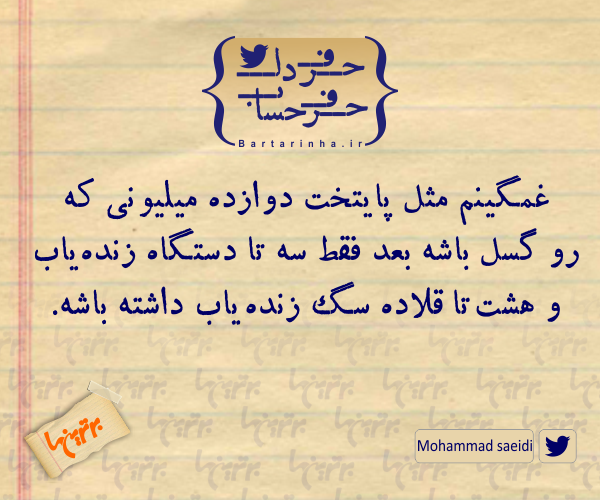 حرف دل
حرف حساب
Bartarinha.ir
غمگینم مثل پایتخت دوازده میلیونی که
رو گسل باشه بعد فقط سه تا دستگاه زنده‌یاب
و هشت تا قلاده سگ زنده یاب داشته باشه.
برترین‌ها
Mohammad saeidi